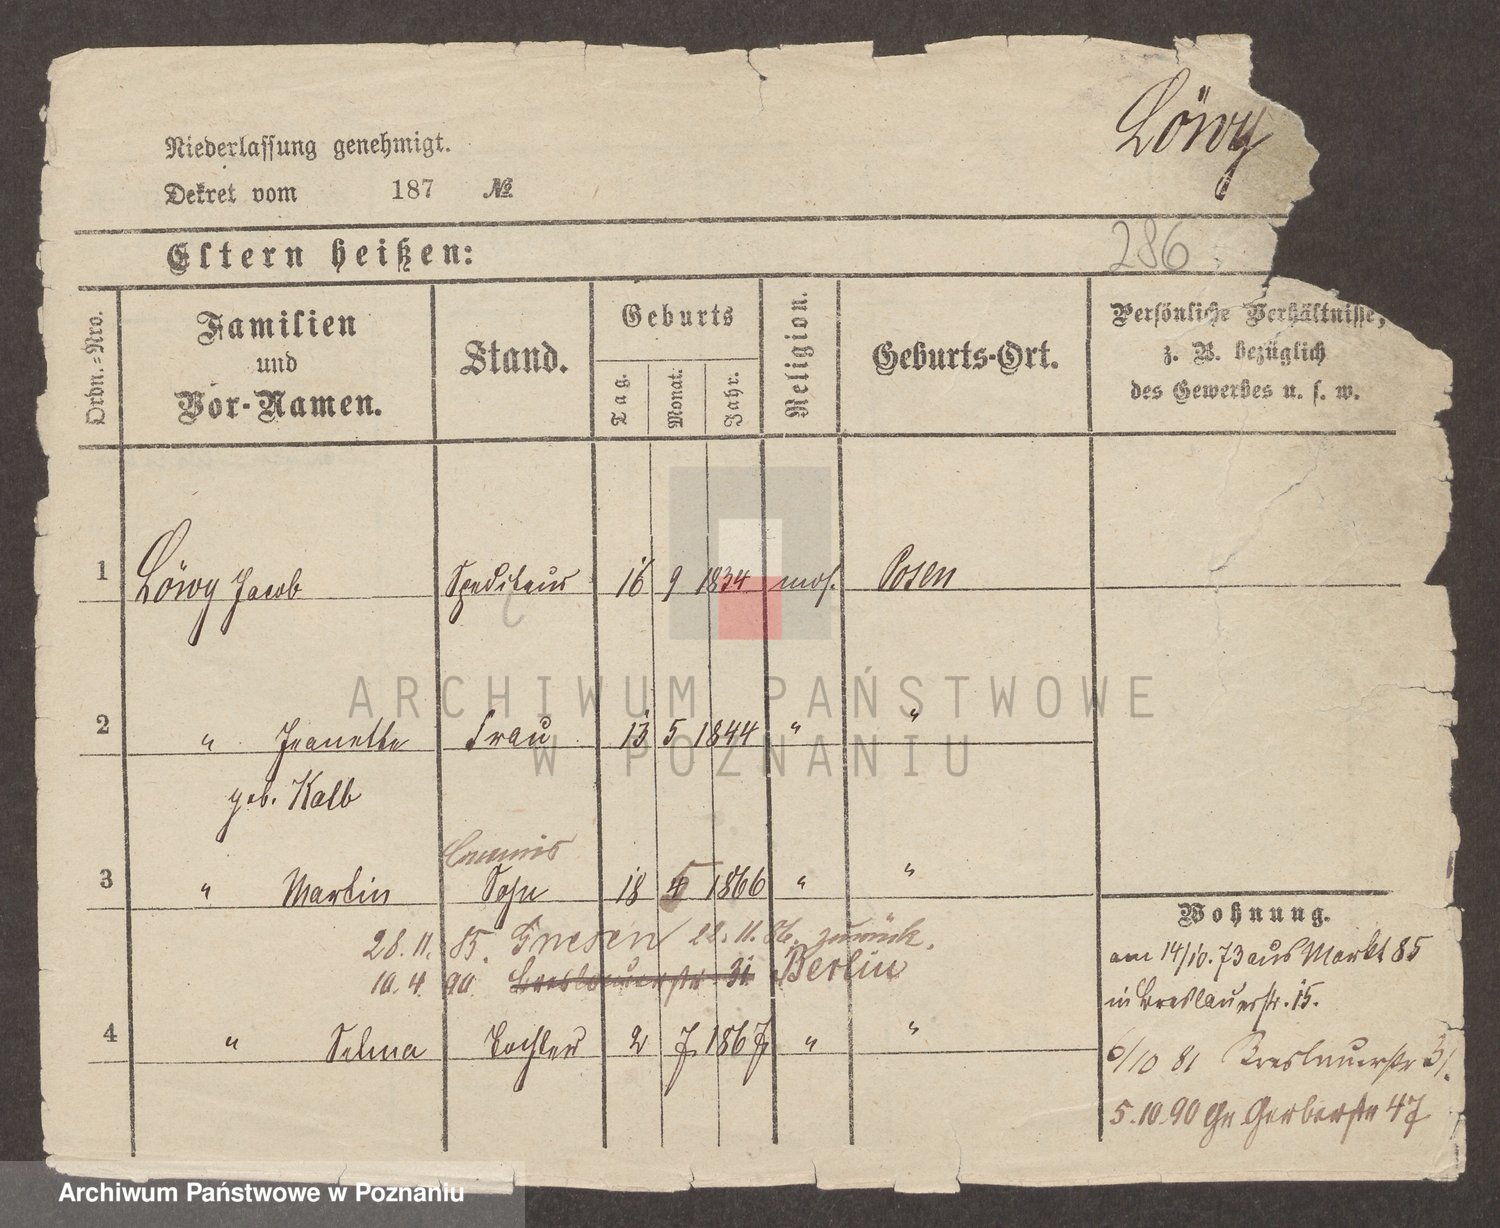 Löwy
Niederlassung genehmigt.
Dekret vom 187 №
286
Eltern heißen:
Ordn.-Nro.
Familien
und
Vor-Namen.
Stand.
Geburts
Tag.
Monat.
Jahr.
Religion.
Geburts-Ort.
Persönliche Verhältnisse,
z. B. bezüglich
des Gewerbes u. s. w.
1 Löwy Jacob Spediteur 16 9 1834 mos. Posen
2 " Jeanette Frau 13 5 1844 " "
geb. Kalb
Commis
3 " Martin Sohn 18 5 1866 " "
28. 11. 85. Gnesen 22. 11. 86. zurück.
10. 4. 90 Breslauerstr 31 Berlin
4 " Selma Tochter 2 7 1867 " "
Wohnung.
am 14/10. 73 aus Markt 85
in Breslauerstr. 15.
6/10 81 Breslauerstr 31.
5. 10. 90 Gr Gerberstr 47
ARCHIWUM PAŃSTWOWE
W POZNANIU
Archiwum Państwowe w Poznaniu